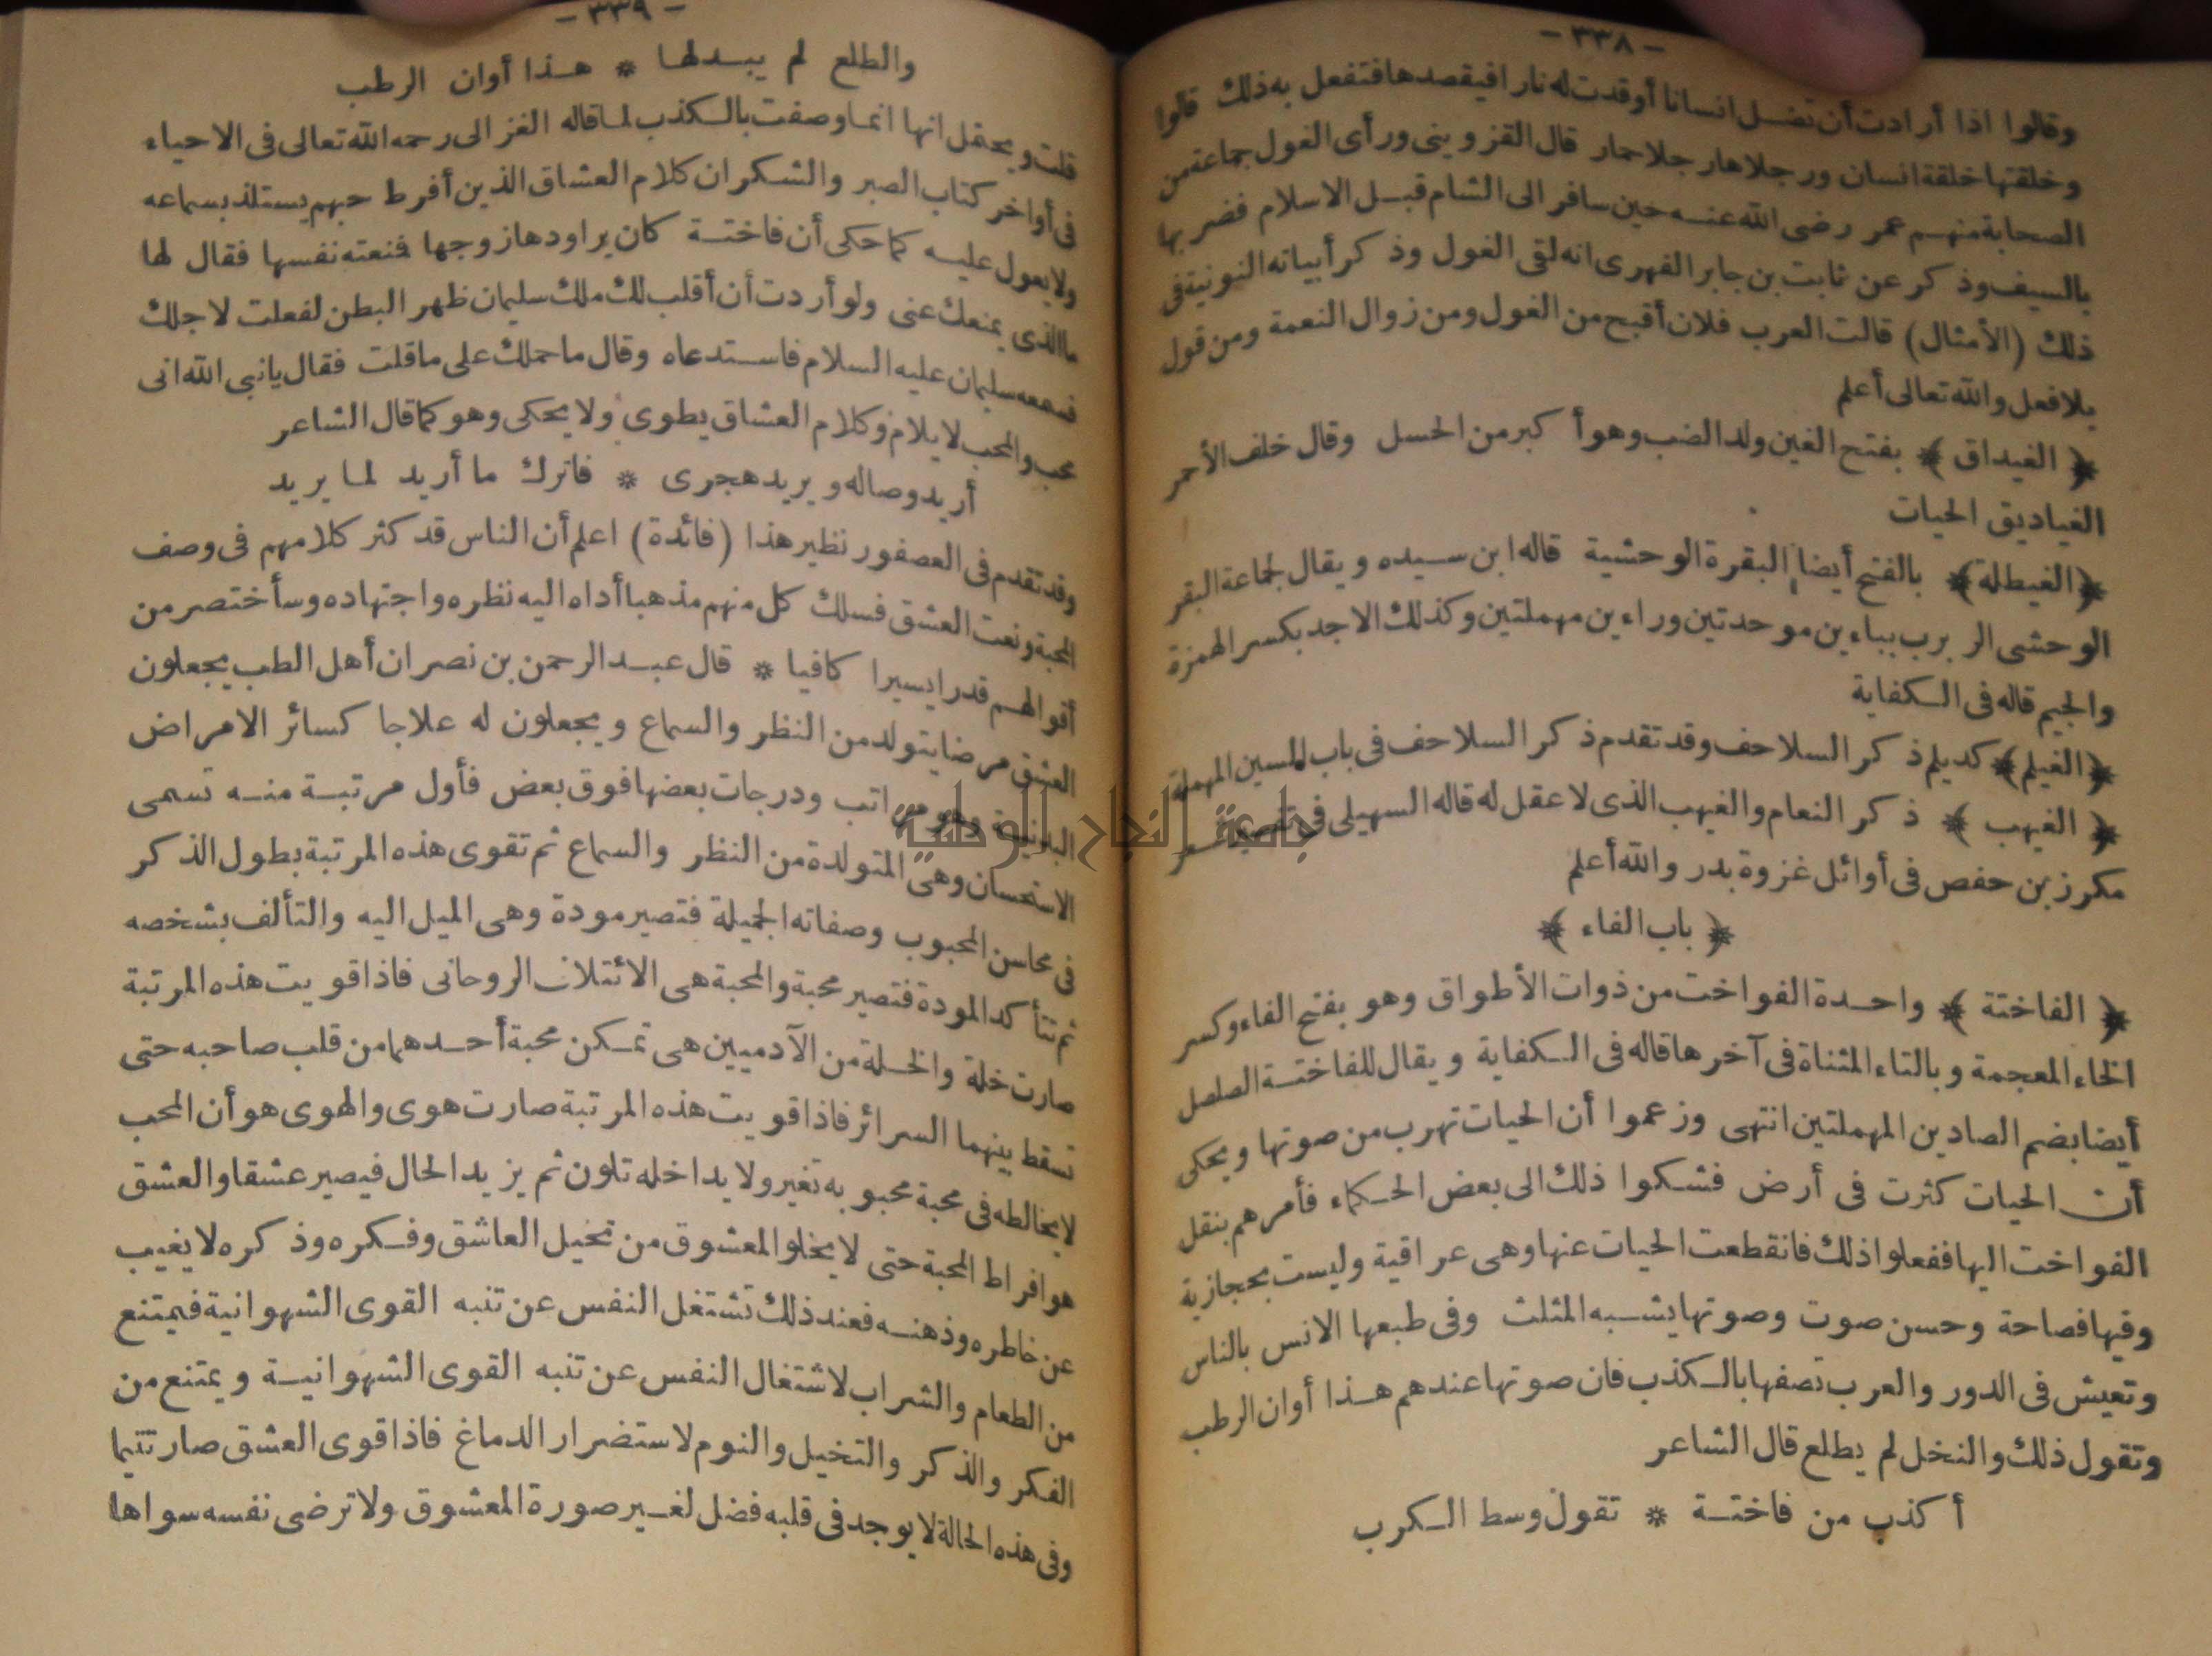 - ٣٣٨ -
وقالوا اذا أرادت أن تضل انسانا أوقدت له نارا فيقصدها فتفعل به ذلك قالوا
وخلقتها خلقة انسان ورجلاها رجلا حمار قال القزوينى ورأى الغول جماعة من
الصحابة منهم عمر رضى الله عنه حين سافر الى الشام قبل الاسلام فضربها
بالسيف وذكر عن ثابت بن جابر الفهرى انه لقى الغول وذكر أبياته النونية فى
ذلك (الأمثال) قالت العرب فلان أقبح من الغول ومن زوال النعمة ومن قول
بلا فعل والله تعالى أعلم
﴿ الغيداق ﴾ بفتح الغين ولد الضب وهو أكبر من الحسل وقال خلف الأحمر
الغياديق الحيات
﴿الغيطلة﴾ بالفتح أيضا البقرة الوحشية قاله ابن سيده ويقال لجماعة البقر
الوحشى الربرب بباءين موحدتين وراءين مهملتين وكذلك الاجد بكسر الهمزة
والجيم قاله فى الكفاية
﴿الغيلم﴾ كديلم ذكر السلاحف وقد تقدم ذكر السلاحف فى باب السين المهملة
﴿ الغيهب ﴾ ذكر النعام والغيهب الذى لا عقل له قاله السهيلى فى تفسير شعر
مكرز بن حفص فى أوائل غزوة بدر والله أعلم
﴿ باب الفاء ﴾
﴿ الفاختة ﴾ واحدة الفواخت من ذوات الأطواق وهو بفتح الفاء وكسر
الخاء المعجمة وبالتاء المثناة فى آخرها قاله فى الكفاية ويقال للفاختة الصلصل
أيضا بضم الصادين المهملتين انتهى وزعموا أن الحيات تهرب من صوتها ويحكى
أن الحيات كثرت فى أرض فشكوا ذلك الى بعض الحكماء فأمرهم بنقل
الفواخت اليها ففعلوا ذلك فانقطعت الحيات عنها وهى عراقية وليست بحجازية
وفيها فصاحة وحسن صوت وصوتها يشبه المثلث وفى طبعها الانس بالناس
وتعيش فى الدور والعرب تصفها بالكذب فان صوتها عندهم هذا أوان الرطب
وتقول ذلك والنخل لم يطلع قال الشاعر
أكذب من فاختة * تقول وسط الكرب
- ٣٣٩ -
والطلع لم يبدلها * هذا أوان الرطب
قلت ويحتمل انها انما وصفت بالكذب لما قاله الغزالى رحمه الله تعالى فى الاحياء
فى أواخر كتاب الصبر والشكر ان كلام العشاق الذين أفرط حبهم يستلذ بسماعه
ولا يعول عليه كما حكى أن فاختة كان يراودها زوجها فنعته نفسها فقال لها
ما الذى يمنعك عنى ولو أردت أن أقلب لك ملك سليمان ظهر البطن لفعلت لاجلك
فسمعه سليمان عليه السلام فاستدعاه وقال ما حملك على ما قلت فقال يا نبى الله انى
محب والمحب لا يلام وكلام العشاق يطوى ولا يحكى وهو كما قال الشاعر
أريد وصاله ويريد هجرى * فاترك ما أريد لما يريد
وقد تقدم فى العصفور نظير هذا (فائدة) اعلم أن الناس قد كثر كلامهم فى وصف
المحبة ونعت العشق فسلك كل منهم مذهبا أداه اليه نظره واجتهاده وسأختصر من
أقوالهم قدرا يسيرا كافيا * قال عبد الرحمن بن نصر ان أهل الطب يجعلون
العشق مرضا يتولد من النظر والسماع ويجعلون له علاجا كسائر الامراض
البدنية وهو مراتب ودرجات بعضها فوق بعض فأول مرتبة منه تسمى
الاستحسان وهى المتولدة من النظر والسماع ثم تقوى هذه المرتبة بطول الذكر
فى محاسن المحبوب وصفاته الجميلة فتصير مودة وهى الميل اليه والتألف بشخصه
ثم تتأكد المودة فتصير محبة والمحبة هى الائتلاف الروحانى فاذا قويت هذه المرتبة
صارت خلة والخلة من الآدميين هى تمكن محبة أحدهما من قلب صاحبه حتى
تسقط بينهما السرائر فاذا قويت هذه المرتبة صارت هوى والهوى هو أن المحب
لا يخالطه فى محبة محبوبه تغير ولا يداخله تلون ثم يزيد الحال فيصير عشقا والعشق
هو افراط المحبة حتى لا يخلو المعشوق من تخيل العاشق وفكره وذكره لا يغيب
عن خاطره وذهنه فعند ذلك تشتغل النفس عن تنبه القوى الشهوانية فيمتنع
من الطعام والشراب لاشتغال النفس عن تنبه القوى الشهوانية ويمتنع من
الفكر والذكر والتخيل والنوم لاستضرار الدماغ فاذا قوى العشق صار تتيما
وفى هذه الحالة لا يوجد فى قلبه فضل لغير صورة المعشوق ولا ترضى نفسه سواها
جامعة النجاح الوطنية